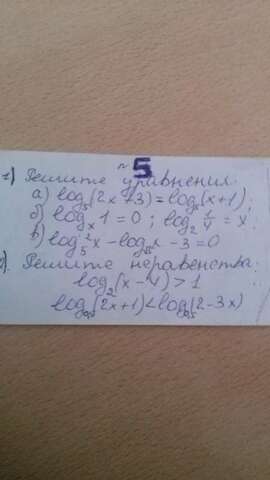 №5
1) Решите уравнения:
а) log₅(2x+3) = log₅(x+1);
б) logₓ 1 = 0; log₂ 1/4 = x;
в) log₅²x − log₅x − 3 = 0
2). Решите неравенства:
log₂(x−4) > 1
log₀,₅(2x+1) < log₀,₅(2−3x)